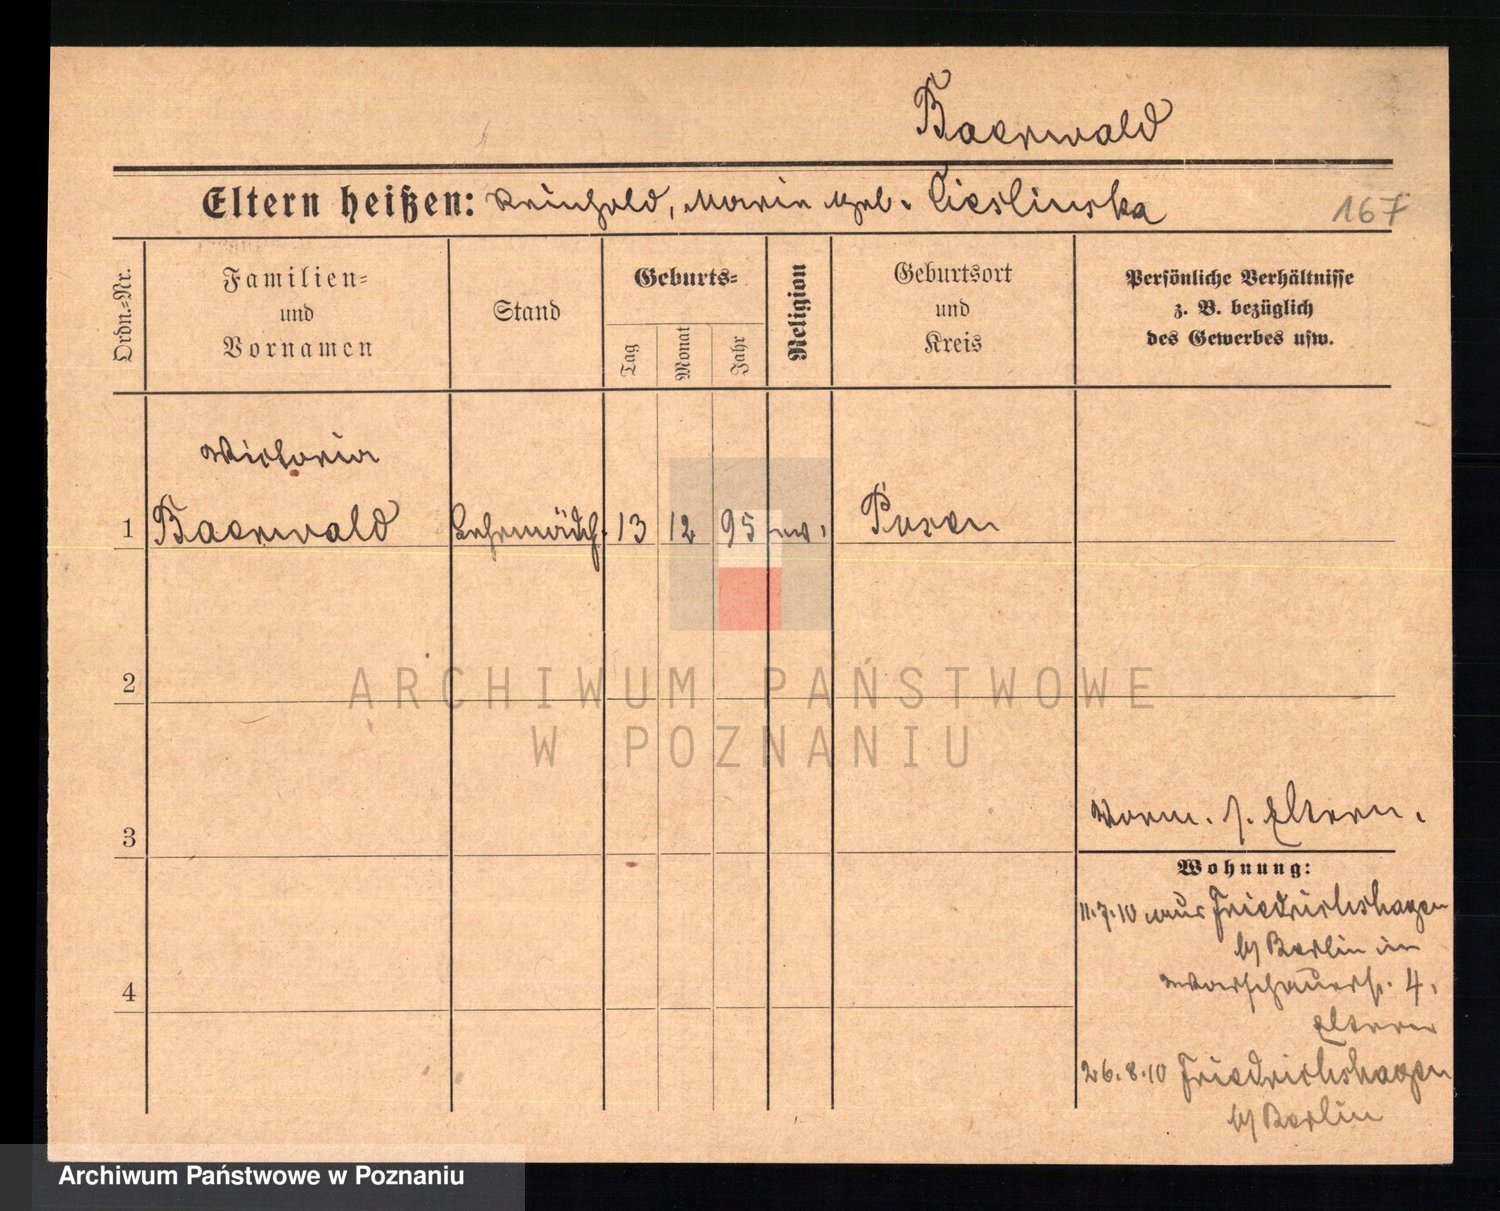 Baerwald
Eltern heißen: Reinhold, Marie geb. Cieslinska
167
Ordn.=Nr.
Familien=
und
Vornamen
Stand
Geburts=
Tag
Monat
Jahr
Religion
Geburtsort
und
Kreis
Persönliche Verhältnisse
z. B. bezüglich
des Gewerbes usw.
Victoria
1 Baerwald Lehrmädch. 13 12 95 ev. Posen
2
ARCHIWUM PAŃSTWOWE
W POZNANIU
3
Vorm. s. Eltern.
Wohnung:
11.7.10 aus Friedrichshagen
b/ Berlin in
Warschauerstr. 4.
Eltern
4
26.8.10 Friedrichshagen
b/ Berlin
Archiwum Państwowe w Poznaniu